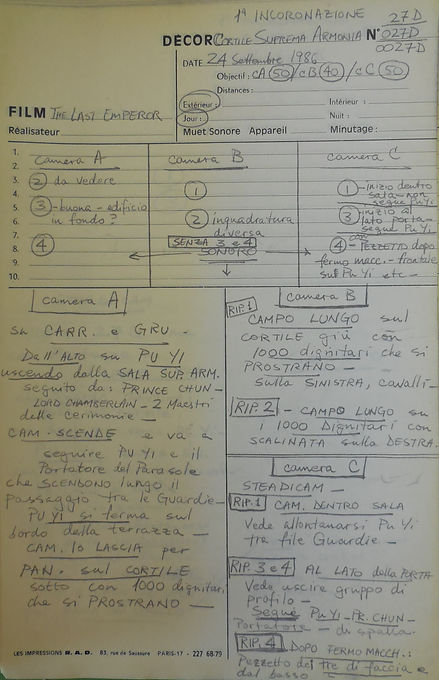 1ª INCORONAZIONE 27D
DECOR CORTILE SUPREMA ARMONIA N° 027D
0027D
DATE 24 Settembre 1986
Objectif: CA (50)/CB (40)/CC (50)
Distances:
Extérieur: Intérieur:
FILM THE LAST EMPEROR
Jour: Nuit:
Réalisateur Muet Sonore Appareil Minutage:
1. camera A camera B camera C
2.
3. (2) da vedere (1) (1) - INIZIO dentro
4. sala - non
segue Pu Yi
5. (3) - buona - edificio
6. in fondo? (2) inquadratura
diversa
(3) INIZIO al
lato porta -
segue Pu Yi
7.
8. (4) SENZA 3 e 4 (4) - PEZZETTO dopo
SONORO
9. fermo macc. - frontale
10. sul Pu Yi etc -
camera A
SU CARR. e GRU -
Dall'ALTO su PU YI
uscendo dalla SALA SUP. ARM.
seguito da: PRINCE CHUN -
LORD CHAMBERLAIN - 2 Maestri
delle cerimonie -
CAM. SCENDE e va a
seguire PU YI e il
Portatore del Parasole
che SCENDONO lungo il
passaggio tra le Guardie -
PU YI si ferma sul
bordo della terrazza -
CAM. lo LASCIA per
PAN. sul CORTILE
sotto con 1000 dignitari
che si PROSTRANO -
camera B
RIP.1
CAMPO LUNGO sul
CORTILE giù con
1000 dignitari che si
PROSTRANO -
sulla SINISTRA, cavalli -
RIP. 2 - CAMPO LUNGO su
i 1000 Dignitari con
SCALINATA sulla DESTRA.
camera C
STEADICAM -
RIP.1 CAM. DENTRO SALA
Vede allontanarsi Pu Yi
tra file Guardie. -
RIP. 3 e 4 AL LATO della PORTA
Vede uscire gruppo di
profilo -
Segue PU YI - PR. CHUN -
Portatore - di spalla.
RIP. 4 DOPO FERMO MACCH.:
Pezzetto dei tre di faccia e
dal basso -
LES IMPRESSIONS R.A.D. 83, rue de Saussure PARIS-17 - 227 68-79